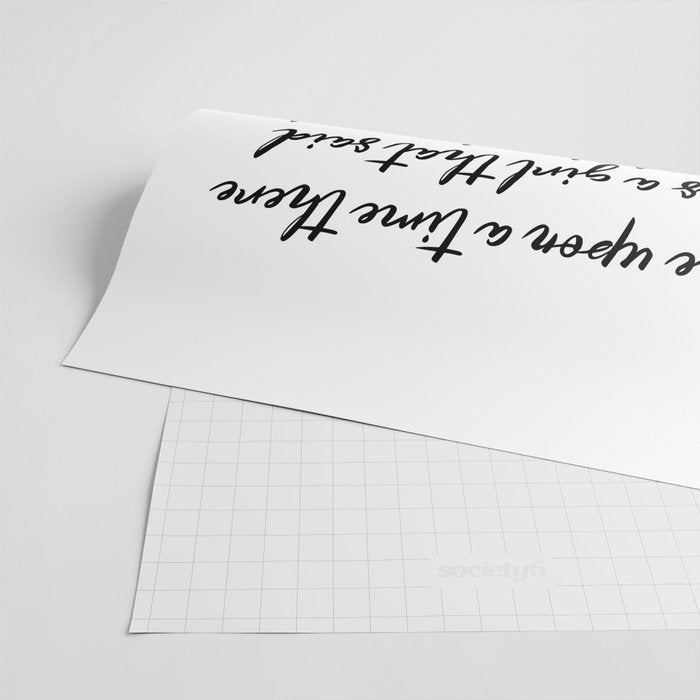 e upon a time there
s a girl that said
society6